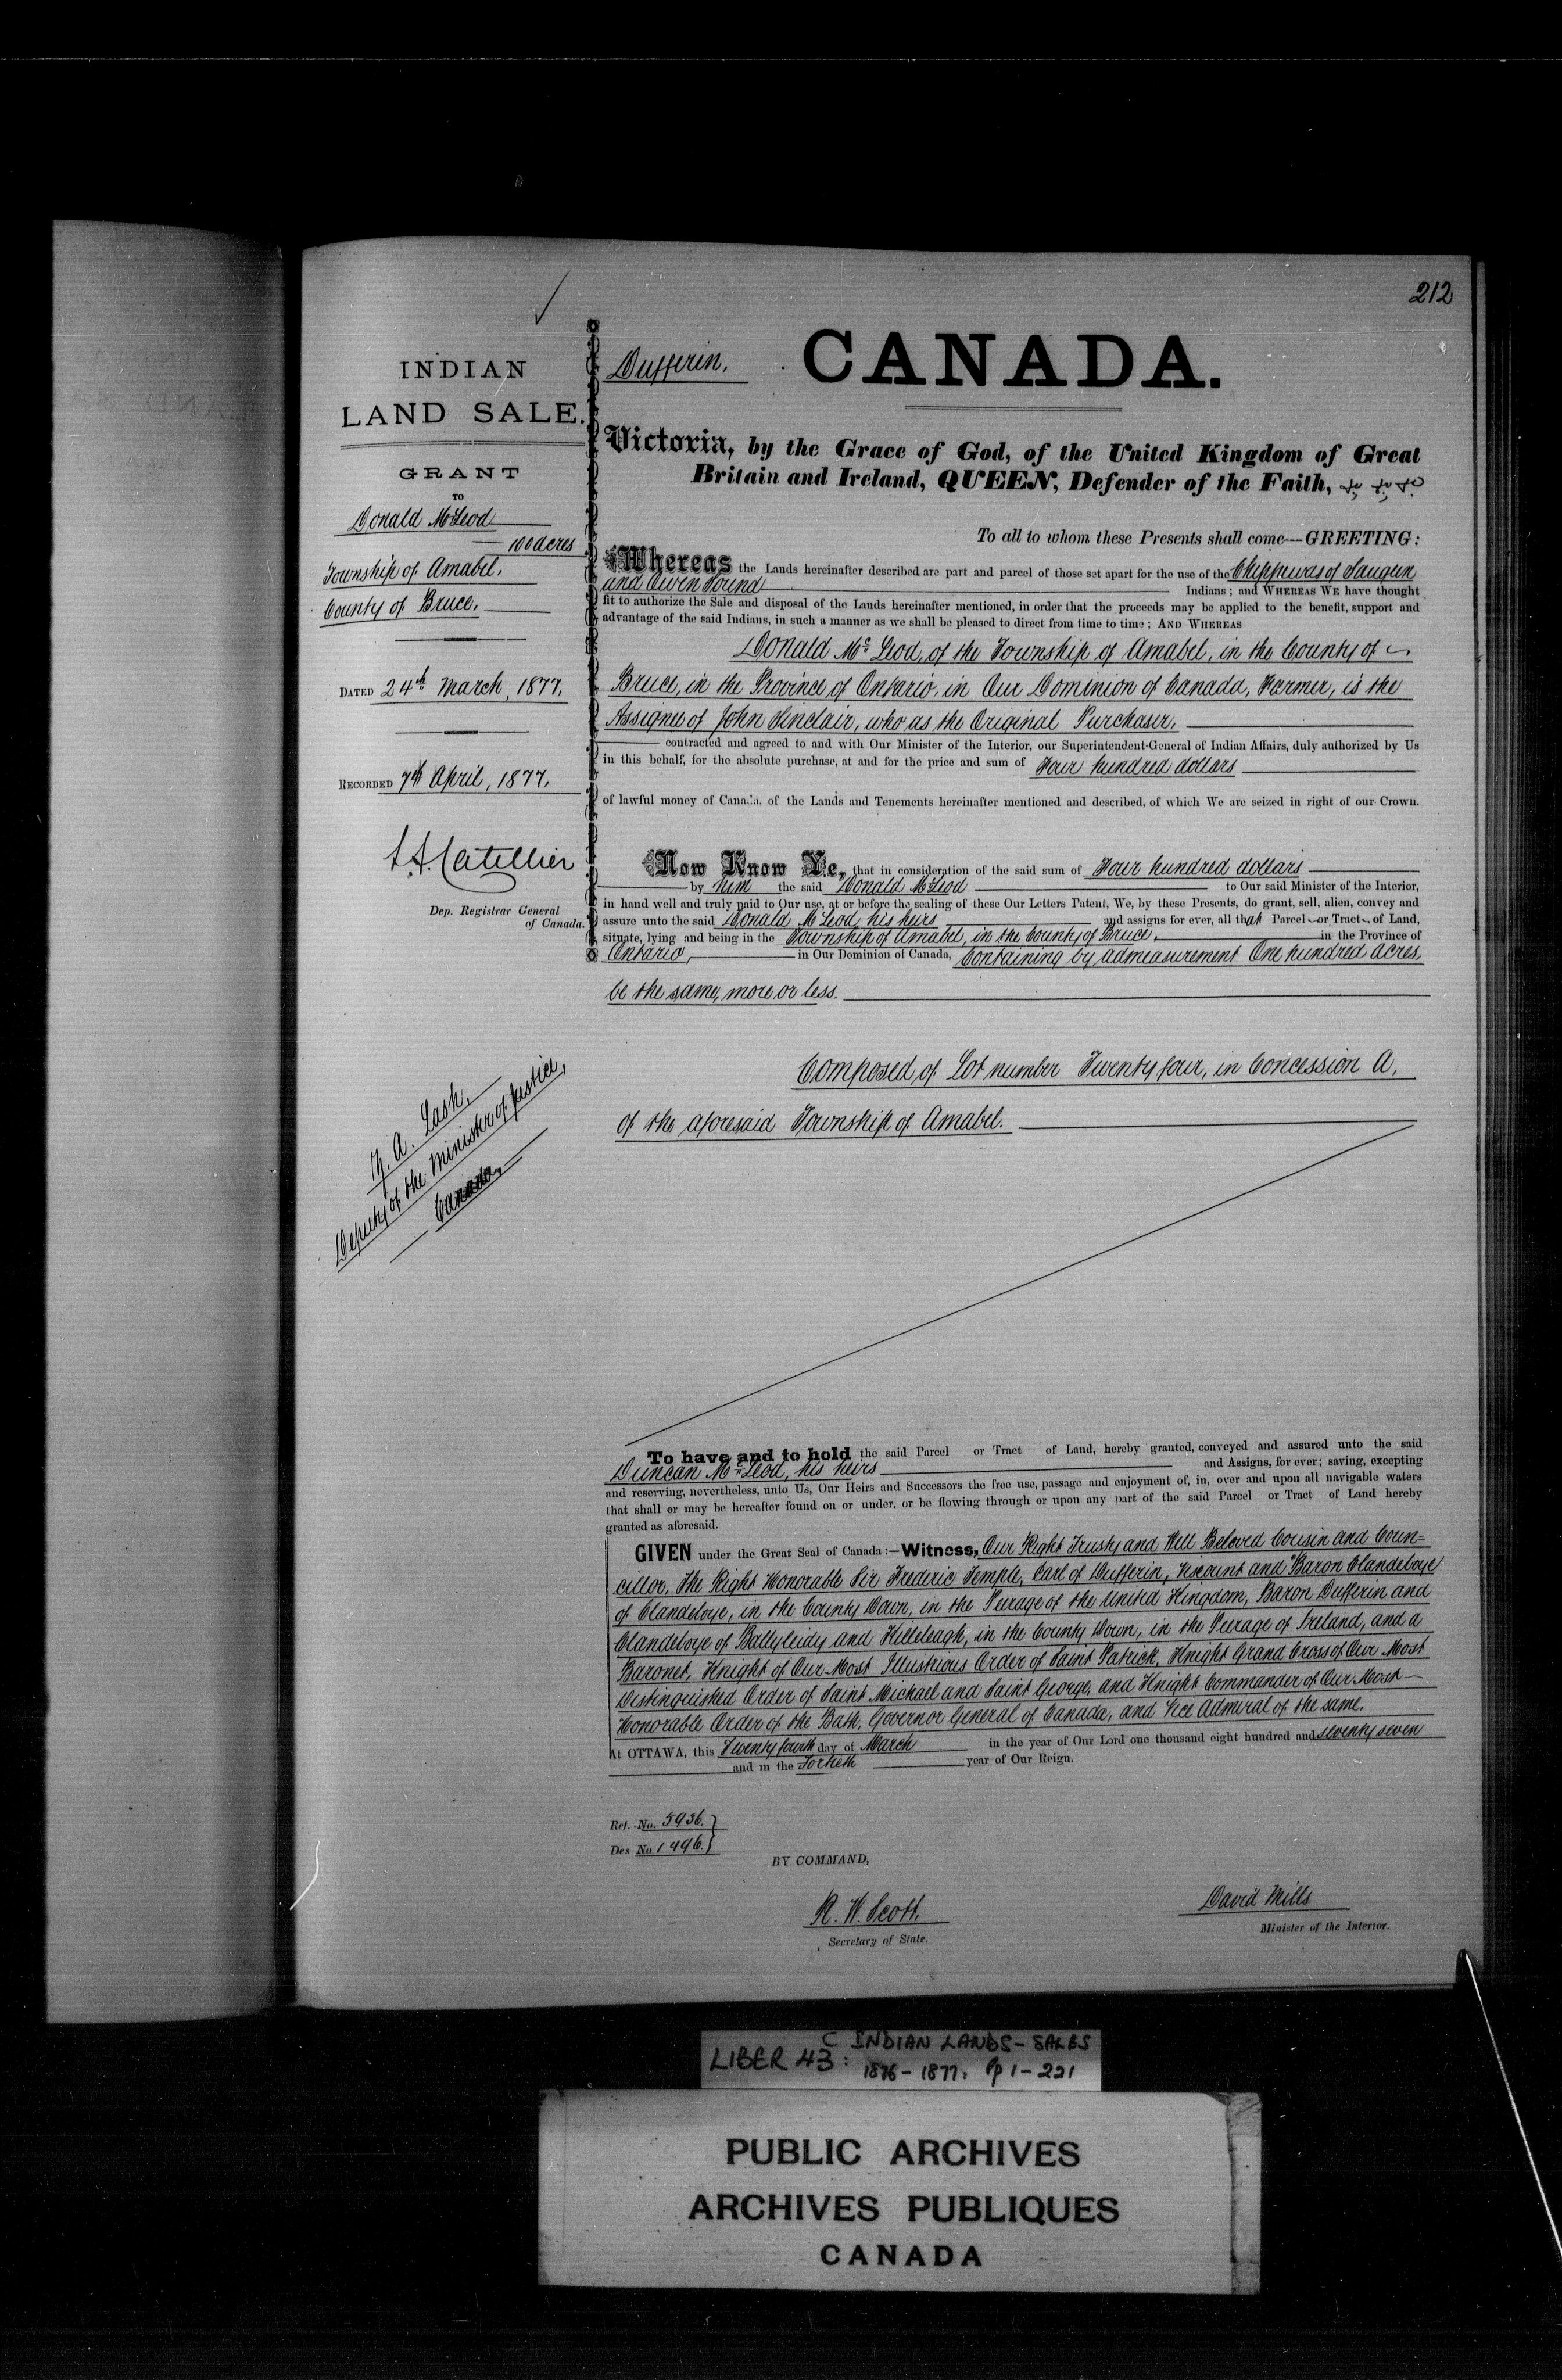 212
INDIAN
LAND SALE.
GRANT
TO
Donald McLeod
100 acres
Township of Amabel,
County of Bruce,
DATED 24th March, 1877.
RECORDED 7th April, 1877.
L. A. Catellier
Dep. Registrar General
of Canada.
Z. A. Lash,
Deputy of the Minister of Justice,
Canada,
Dufferin. CANADA.
Victoria, by the Grace of God, of the United Kingdom of Great
Britain and Ireland, QUEEN, Defender of the Faith, &c, &c, &c
To all to whom these Presents shall come---GREETING:
Whereas the Lands hereinafter described are part and parcel of those set apart for the use of the Chippewas of Saugeen
and Owen Sound Indians; and WHEREAS WE have thought
fit to authorize the Sale and disposal of the Lands hereinafter mentioned, in order that the proceeds may be applied to the benefit, support and
advantage of the said Indians, in such a manner as we shall be pleased to direct from time to time; AND WHEREAS
Donald McLeod, of the Township of Amabel, in the County of
Bruce, in the Province of Ontario, in Our Dominion of Canada, Farmer, is the
Assignee of John Sinclair, who as the Original Purchaser,
contracted and agreed to and with Our Minister of the Interior, our Superintendent-General of Indian Affairs, duly authorized by Us
in this behalf, for the absolute purchase, at and for the price and sum of Four hundred dollars
of lawful money of Canada, of the Lands and Tenements hereinafter mentioned and described, of which We are seized in right of our Crown.
Now Know Ye, that in consideration of the said sum of Four hundred dollars
by him the said Donald McLeod to Our said Minister of the Interior,
in hand well and truly paid to Our use, at or before the sealing of these Our Letters Patent, We, by these Presents, do grant, sell, alien, convey and
assure unto the said Donald McLeod, his heirs and assigns for ever, all that Parcel or Tract of Land,
situate, lying and being in the Township of Amabel, in the County of Bruce, in the Province of
Ontario, in Our Dominion of Canada, Containing by admeasurement One hundred acres,
be the same, more or less
Composed, of Lot number Twenty four, in Concession A,
of the aforesaid Township of Amabel.
To have and to hold the said Parcel or Tract of Land, hereby granted, conveyed and assured unto the said
Duncan McLeod, his heirs and Assigns, for ever; saving, excepting
and reserving, nevertheless, unto Us, Our Heirs and Successors the free use, passage and enjoyment of, in, over and upon all navigable waters
that shall or may be hereafter found on or under, or be flowing through or upon any part of the said Parcel or Tract of Land hereby
granted as aforesaid.
GIVEN under the Great Seal of Canada:—Witness, Our Right Trusty and Well Beloved Cousin and Coun=
cillor, The Right Honorable Sir Frederic Temple, Earl of Dufferin, Viscount and Baron Clandeboye
of Clandeboye, in the County Down, in the Peerage of the United Kingdom, Baron Dufferin and
Clandeboye of Ballyleidy and Killeleagh, in the County Down, in the Peerage of Ireland, and a
Baronet, Knight of Our Most Illustrious Order of Saint Patrick, Knight Grand Cross of Our Most
Distinguished Order of Saint Michael and Saint George, and Knight Commander of Our Most
Honorable Order of the Bath, Governor General of Canada, and Vice Admiral of the same.
At OTTAWA, this Twenty fourth day of March in the year of Our Lord one thousand eight hundred and seventy seven
and in the Fortieth year of Our Reign.
Ref. No. 5936.
Des No. 1496.
BY COMMAND,
R. W. Scott.
Secretary of State.
David Mills
Minister of the Interior.
LIBER 43: C INDIAN LANDS - SALES
1876-1877. Pp 1-221
PUBLIC ARCHIVES
ARCHIVES PUBLIQUES
CANADA